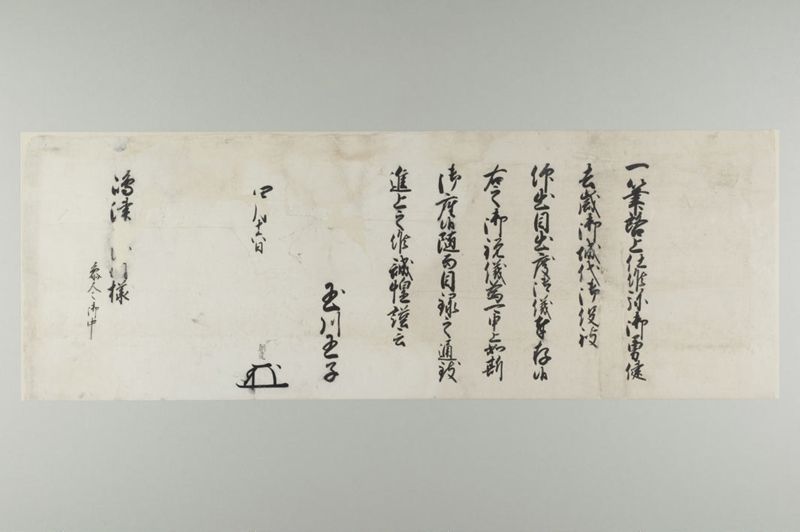 一筆啓上仕候弥御勇健
去歳御城代御役被
仰出目出度御儀奉存候
右之御祝儀為可申上如斯
御座候随而目録之通致
進上之候誠惶謹言
玉川王子
四月 日
嶋津 様
參人々御中